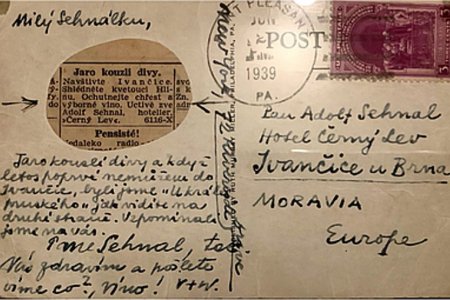 Milý Sehnálku,
Jaro kouzlí divy.
Navštivte Ivančice.
Shlédněte kvetoucí Hli-
nu. Ochutnejte chřest a
výborné víno. Uctivě zve
Adolf Sehnal, hotelier,
»Černý Lev«. 6116-X
Pensisté!
radio
Jaro kouzlí divy a když
letos poprvé nemůžem do
Ivančic, byli jsme "U krále
pruského" jak vidíte na
druhé straně. Vzpomínali
jsme na vás.
Pane Sehnal,
Vás zdravím a pošlete
víme co?, Víno! V+W.
New York
T PLEASAN
JUN
1939
PA.
POST
3
Pan Adolf Sehnal
Hotel Černý Lev
Ivančice u Brna
MORAVIA
Europe